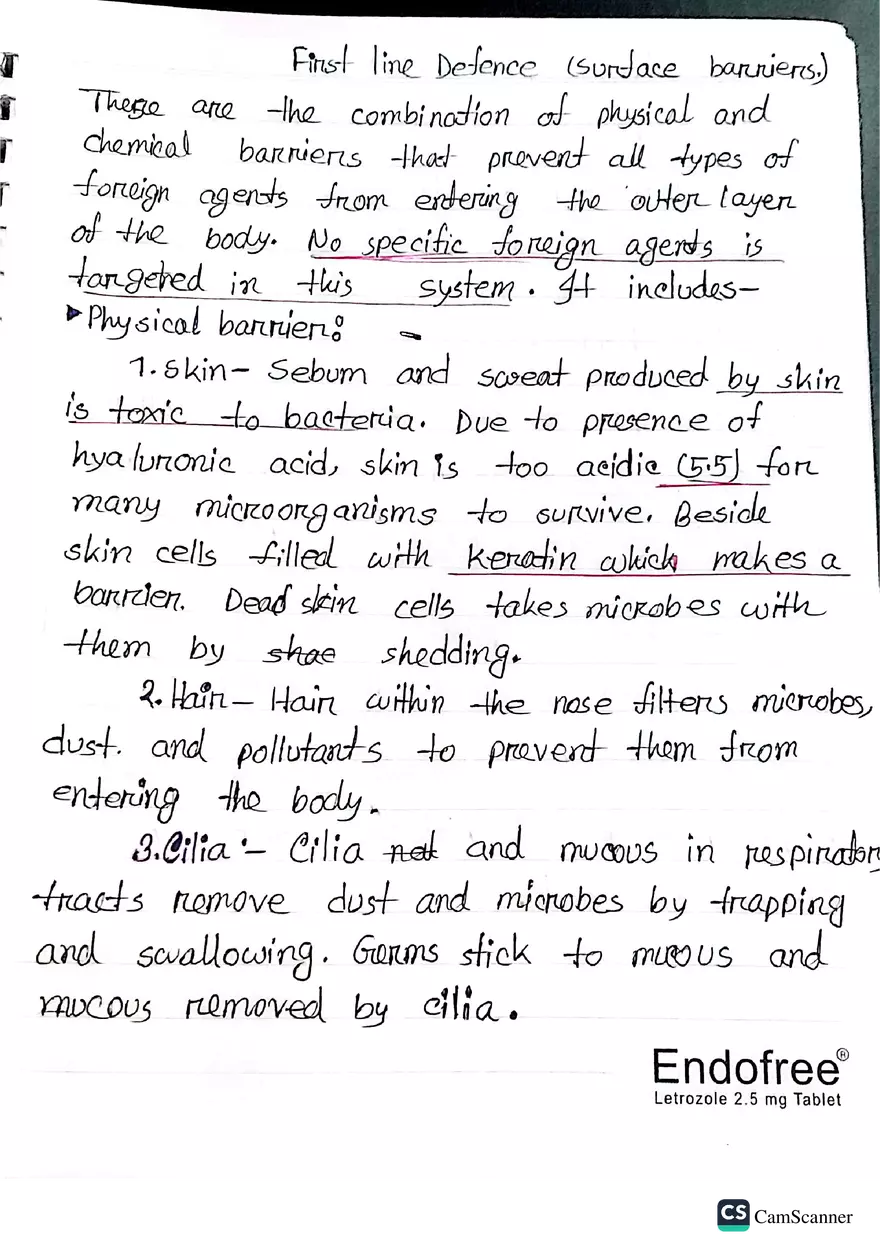 First line Defence (surface barriers.)
These are the combination of physical and
chemical barriers that prevent all types of
foreign agents from entering the outer layer
of the body. No specific foreign agents is
targeted in this system. It includes-
Physical barrier:-
1. Skin- Sebum and sweat produced by skin
is toxic to bacteria. Due to presence of
hyaluronic acid, skin is too acidic (5.5) for
many microorganisms to survive. Beside
skin cells filled with keratin which makes a
barrier. Dead skin cells takes microbes with
them by shae shedding.
2. Hair- Hair within the nose filters microbes,
dust. and pollutants to prevent them from
entering the body.
3. Cilia :- Cilia not and mucous in respiratory
tracts remove dust and microbes by trapping
and swallowing. Germs stick to mucous and
mucous removed by cilia.
Endofree®
Letrozole 2.5 mg Tablet
CS CamScanner